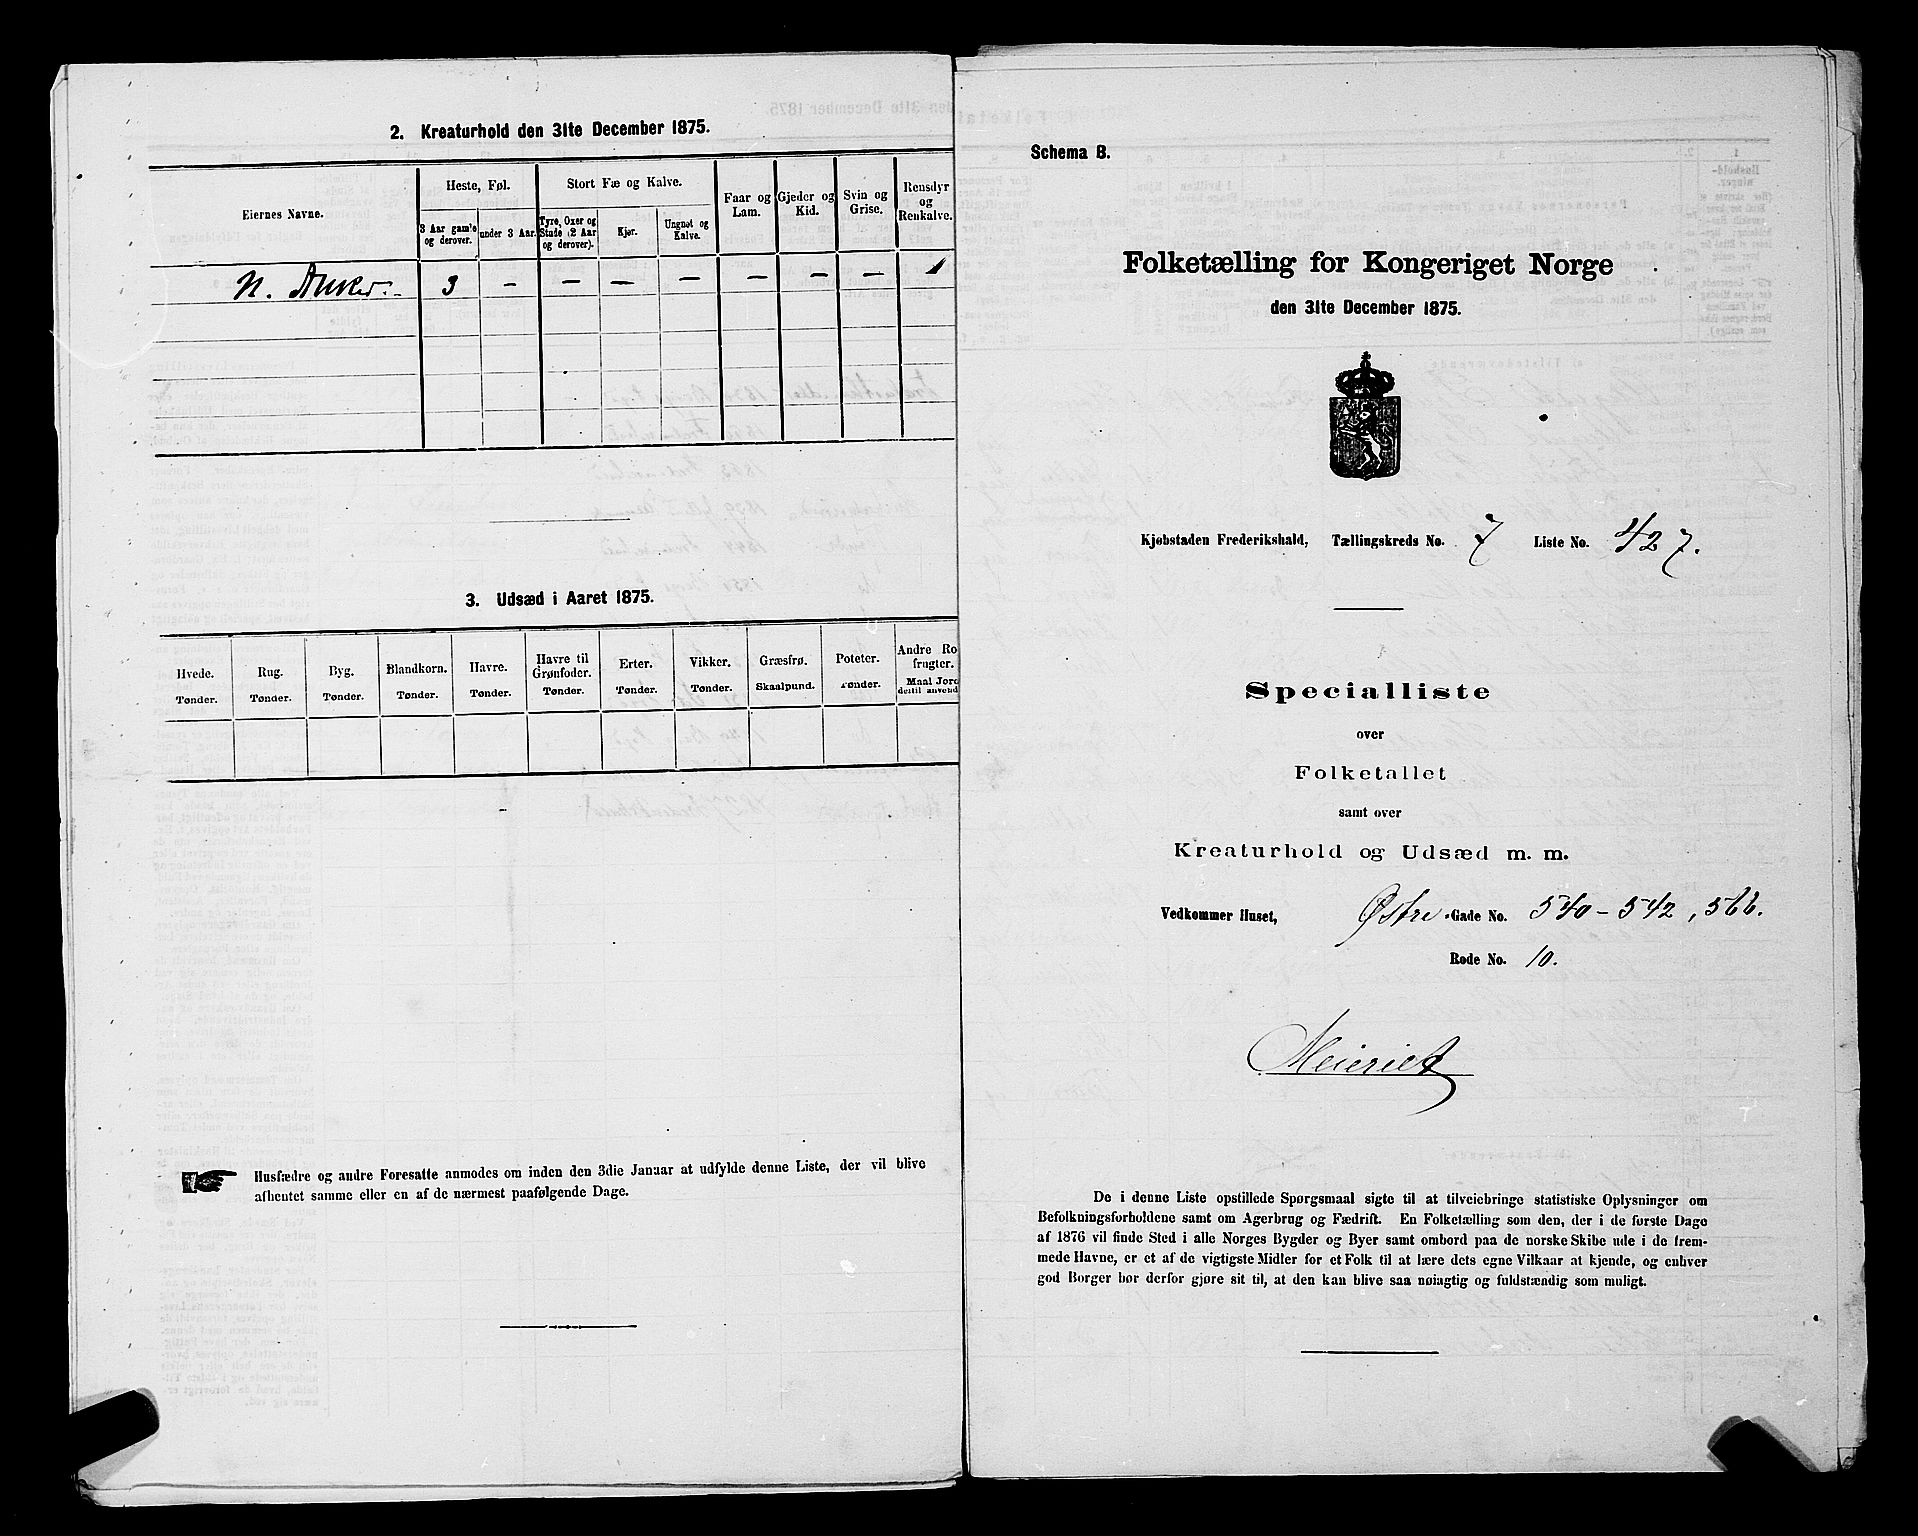 2. Kreaturhold den 31te December 1875.
Eiernes Navne.
Heste, Føl.
3 Aar gamle og derover.
under 3 Aar.
Stort Fæ og Kalve.
Tyre, Oxer og Stude (2 Aar og derover).
Kjør.
Ungnøt og Kalve.
Faar og Lam.
Gjeder og Kid.
Svin og Grise.
Rensdyr og Renkalve.
N. Anker. 3 — — — — — — —
3. Udsæd i Aaret 1875.
Hvede. Tønder.
Rug. Tønder.
Byg. Tønder.
Blandkorn. Tønder.
Havre. Tønder.
Havre til Grønfoder. Tønder.
Erter. Tønder.
Vikker. Tønder.
Græsfrø. Skaalpund.
Poteter. Tønder.
Andre Ro frugter. Maal Jord dertil anvend
Husfædre og andre Foresatte anmodes om inden den 3die Januar at udfylde denne Liste, der vil blive
afhentet samme eller en af de nærmest paafølgende Dage.
Schema B.
Folketælling for Kongeriget Norge
den 31te December 1875.
Kjøbstaden Frederikshald, Tællingskreds No. 7 Liste No. 427.
Specialliste
over
Folketallet
samt over
Kreaturhold og Udsæd m. m.
Vedkommer Huset, Østre Gade No. 540-542, 566.
Rode No. 10.
Meieriet
De i denne Liste opstillede Spørgsmaal sigte til at tilveiebringe statistiske Oplysninger om
Befolkningsforholdene samt om Agerbrug og Fædrift. En Folketælling som den, der i de første Dage
af 1876 vil finde Sted i alle Norges Bygder og Byer samt ombord paa de norske Skibe ude i de frem-
mede Havne, er et af de vigtigste Midler for et Folk til at lære dets egne Vilkaar at kjende, og enhver
god Borger bør derfor gjøre sit til, at den kan blive saa nøiagtig og fuldstændig som muligt.